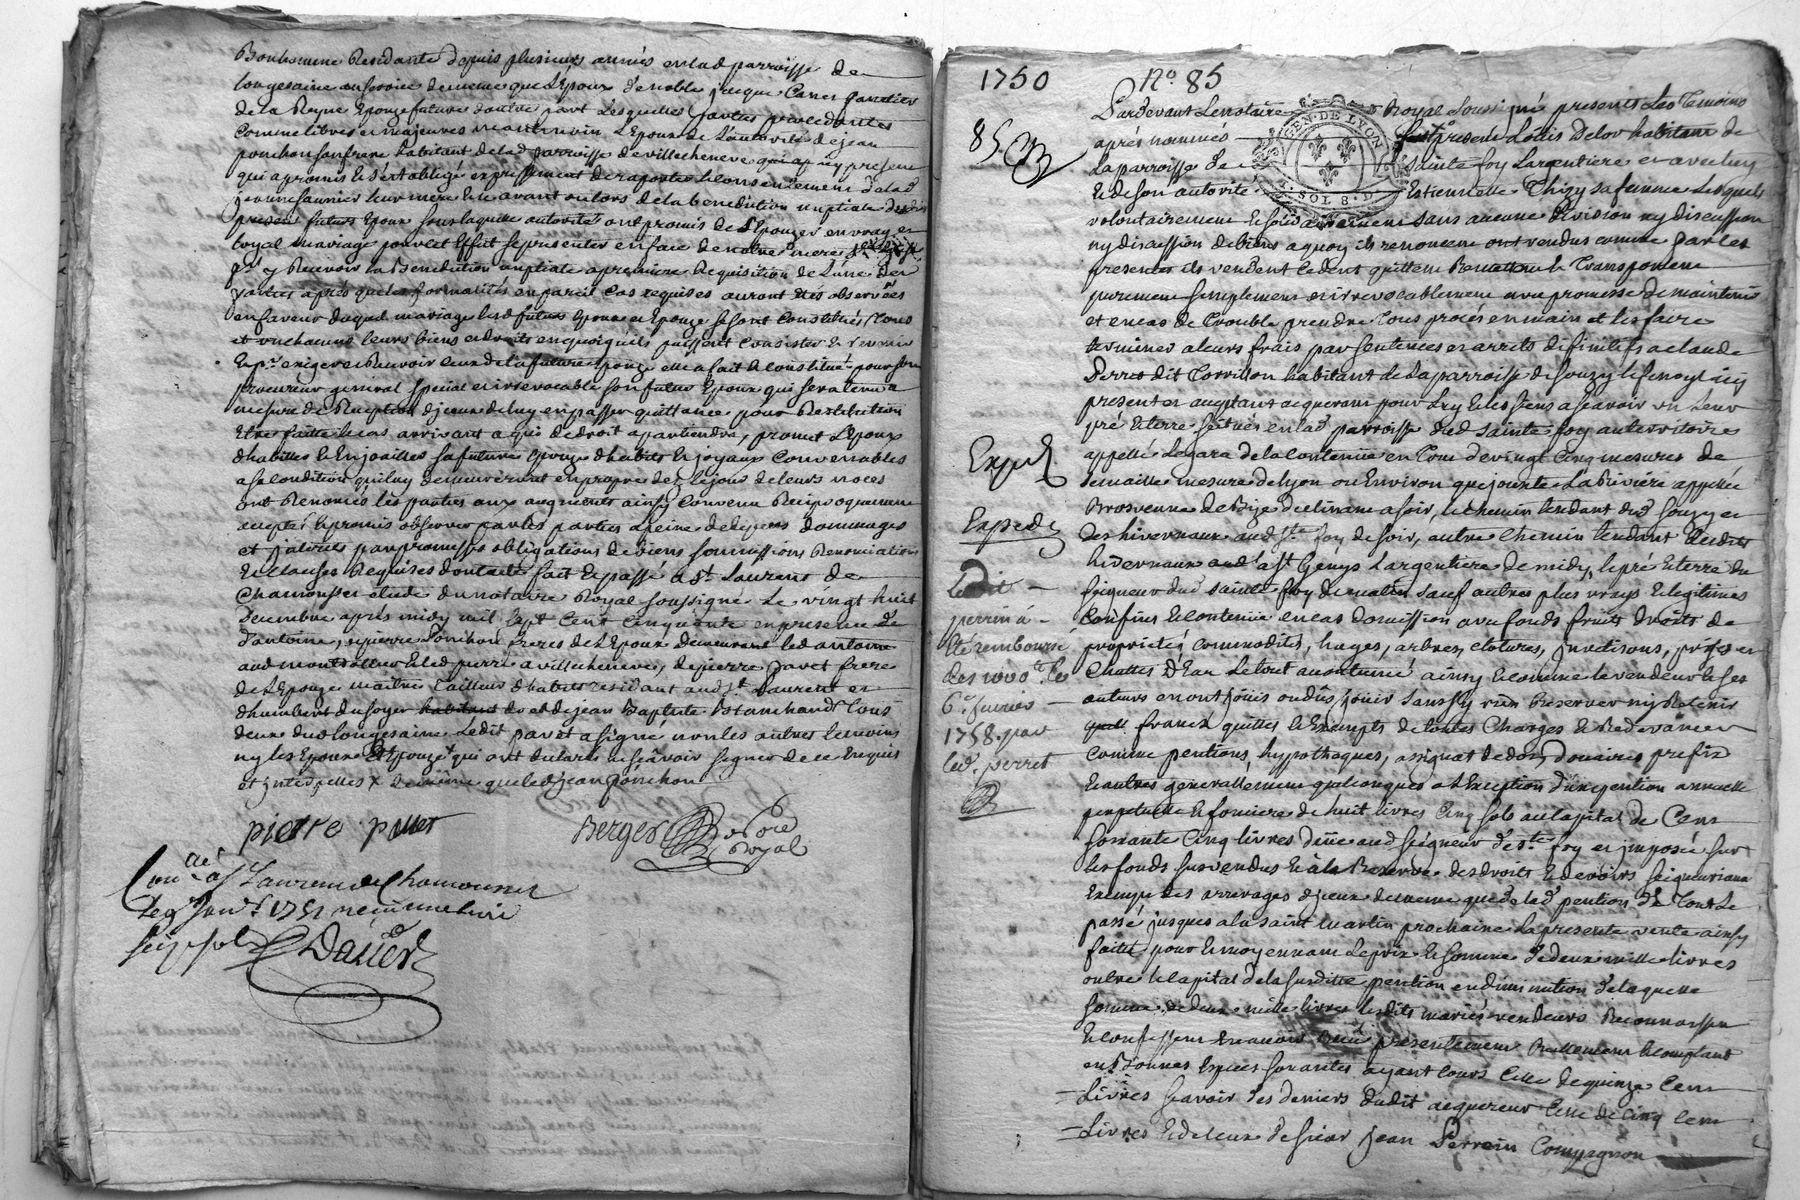 Bonhomme Residante depuis plusieurs années enlad parroisse de
longesaigne
de la Reyne Epouze future d'autre part Lesquelles parties procedantes
comme libres et majeures neantmoins L'Epoux de L'autorité de jean
ponchon son frere habitant de lad parroisse de villecheneve qui a py present
qui a promis et s'est obligé expressement de raporter le consentement de lad
jeanne saunier leur mere et ce avant ou lors de la benediction nuptiale
futurs Epoux sous laquelle autorité ont promis de S'Epouzer en vray et
loyal mariage pour cet Effet se presenter en face de notre mere Ste Eglise
pr y Recevoir la Benediction nuptiale a premiere Requisition de L'une des
parties après que les formalités en pareil cas requises auront Etés observées
en faveur duquel mariage lesd futurs Epoux et Epouze se sont Constitués tous
et un chacuns leurs biens et droits en quoy qu'ils puissent Consister
et pr exiger et Recevoir ceux de la future Epouze elle a fait et constitué pour son
procureur general special et irrevocable son futur Epoux qui sera tenu a
mesure de Reception d'jceux de luy en passer quittance pour Restitution
Etre faitte le cas arrivant a qui de droit apartiendra, promet L'Epoux
d'habiller et Enjoailler sa future Epouze d'habits et joyaux Convenables
a sa condition qui luy demeureront en propre des le jour de leurs noces
ont Renoncés les parties aux augments ainsy Convenu Reciproquement
accepté et promis observer par les parties a peine de depens dommages
et jnterets par promesses obligations de biens soumissions Renonciations
et clauses Requises dont acte fait et passé a St Laurent de
Chamousset etude du notaire Royal soussigné Le vingt huit
Decembre après midy mil sept Cent Cinquante en presence de
d'antoine, et pierre Ponchon freres de L'Epoux demeurant led antoine
aud montrottier et led pierre a villecheneve, de pierre pavet frere
de L'Epouze maitre Tailleur d'habits residant aud St Laurent et
d'humbert dusoyer habitant de et de jean Baptiste Blanchard tous
deux dud longesaigne Ledit pavet a signé non les autres temoins
ny les Epoux et Epouze qui ont declaré ne sçavoir signer de ce Enquis
et jnterpellés x de même que led jean ponchon
pierre pavet
Berger Nore
Royal
Conlé a St Laurent de Chamousset
Le 9 Janv. 1751
seize sols Dauer
1750 No. 85
85
GEN. DE LYON
SOL 8. D
Pardevant Le notaire Royal Soussigné presents Les Temoins
après nommés fut present Loüis Delor habitant de
La parroisse de Sainte foy Largentiere et avec luy
et de son autorité Estiennette Thizy sa femme Lesquels
volontairement et solidairement sans aucune Division ny discussion
ny discussion de biens a quoy ils renoncent ont vendus comme par ces
presentes ils vendent cedent quittent Remettent et Transportent
purement simplement et irrevocablement avec promesse de maintenir
et en cas de Trouble prendre Tous procès en main et les faire
terminer a leurs frais par sentences et arrets difinitifs a claude
Perret dit Torvillon habitant de La parroisse de Souzy icy
present et acceptant acquereur pour Luy et les siens a sçavoir un Leur
pré et terre scitués en lad parroisse dud sainte foy au territoire
appellé Legara de la Contenüe en Tout de vingt Cinq mesures de
semaille mesure de Lyon ou Environ que jouxte La Riviere appellée
Brevenne de Bize declinant a soir, le chemin tendant dud Souzy et
des hivernaux aud Ste foy de soir, autre chemin tendant desdits
hivernaux aud a St Genys Largentiere de midy, le pré et terre du
seigneur dud sainte foy de matin sauf autres plus vrays et legitimes
Confins et contenüe en cas d'omission avec fonds fruits droits de
proprieté, commodités, hayes, arbres, clotures, jnvetisons, prises et
Chuttes D'Eau Le tout au contenu ainsy et comme le vendeur et ses
auteurs en ont jouis ou dûs joüir sans sy rien Reserver ny Retenir
francs quittes et Exempts de toutes Charges et Redevances
Comme pentions, hypothaques, assignat de dot, Doüaires prefix
et autres generallement quelconques a L'Exeption d'une pention annuelle
perpetuelle et fonciere de huit livres Cinq sols au Capital de Cent
soixante Cinq livres düe aud seigneur de Ste foy et jmposée sur
les fonds sus vendus et à la Reserve des droits et devoirs seigneuriaux
Exempt des arrerages d'jceux de meme que de lad pention de Tout Le
passé jusques a la saint Martin prochaine La presente vente ainsy
faitte pour et moyennant Le prix et somme de deux mille livres
outre le Capital de la susditte pention en diminution de laquelle
somme de deux mille livres lesdits mariés vendeurs Reconnoissent
et confessent en avoir Recu presentement Reellement et comptant
en Bonnes Especes sonantes ayant Cours Celle de quinze Cent
Livres sçavoir des deniers dudit acquereur Celle de Cinq Cent
Livres et de ceux de sieur Jean Perrein Compagnon
Exped
Expedié
Ledit
perrin á
été remboursé
des 1000 lt le
6e. fevrier
1758. par
led. perret